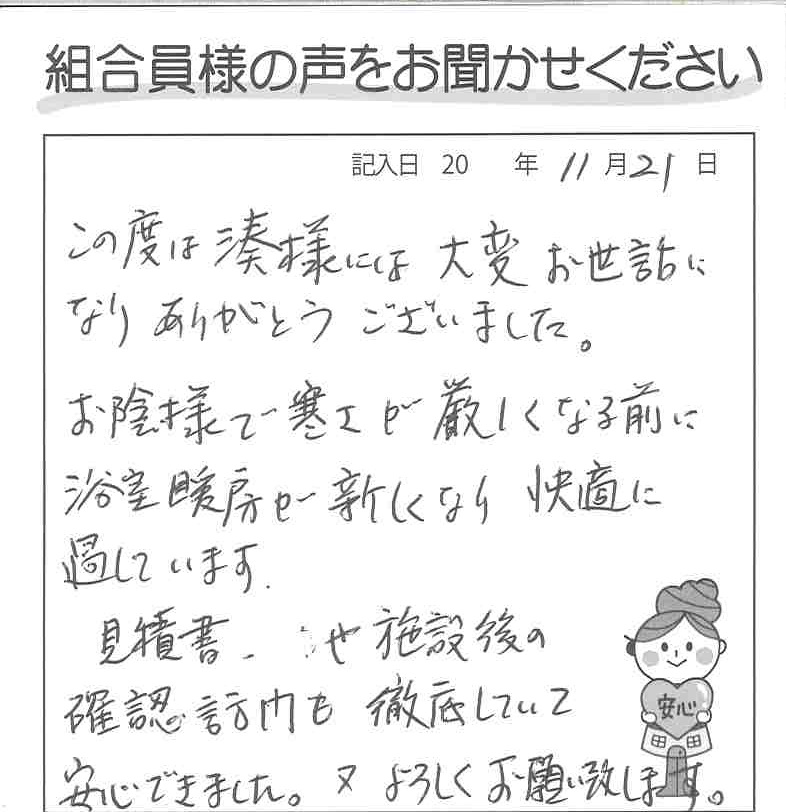 組合員様の声をお聞かせください
記入日 20 年 11月21日
この度は湊様には 大変 お世話に
なり ありがとう ございました。
お陰様で 寒さが 厳しくなる前に
浴室暖房が 新しくなり 快適に
過しています.
見積書、 や 施設後の
確認訪門も 徹底していて
安心できました。 又 よろしくお願い致します。
安心